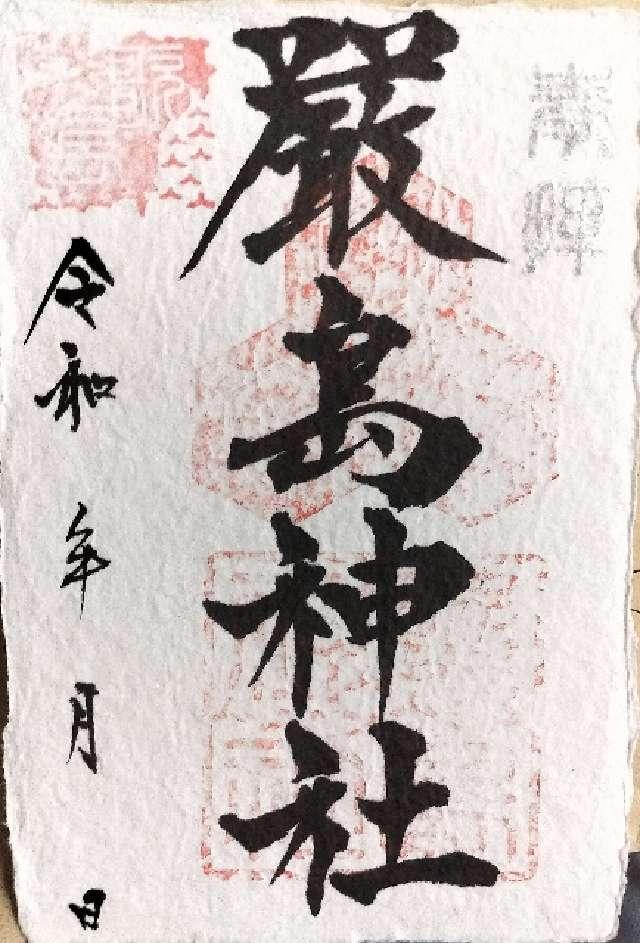 奉拝
嚴島神社
令和 年 月 日